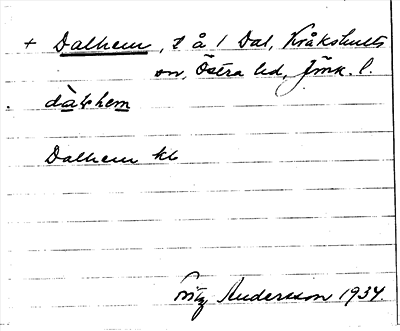 + Dalhem, 2 å 1 Dal, Kråkshults
sn, Östra hd, Jönk. l.
dàlhem
Dalhem kb
Fritz Andersson 1934.